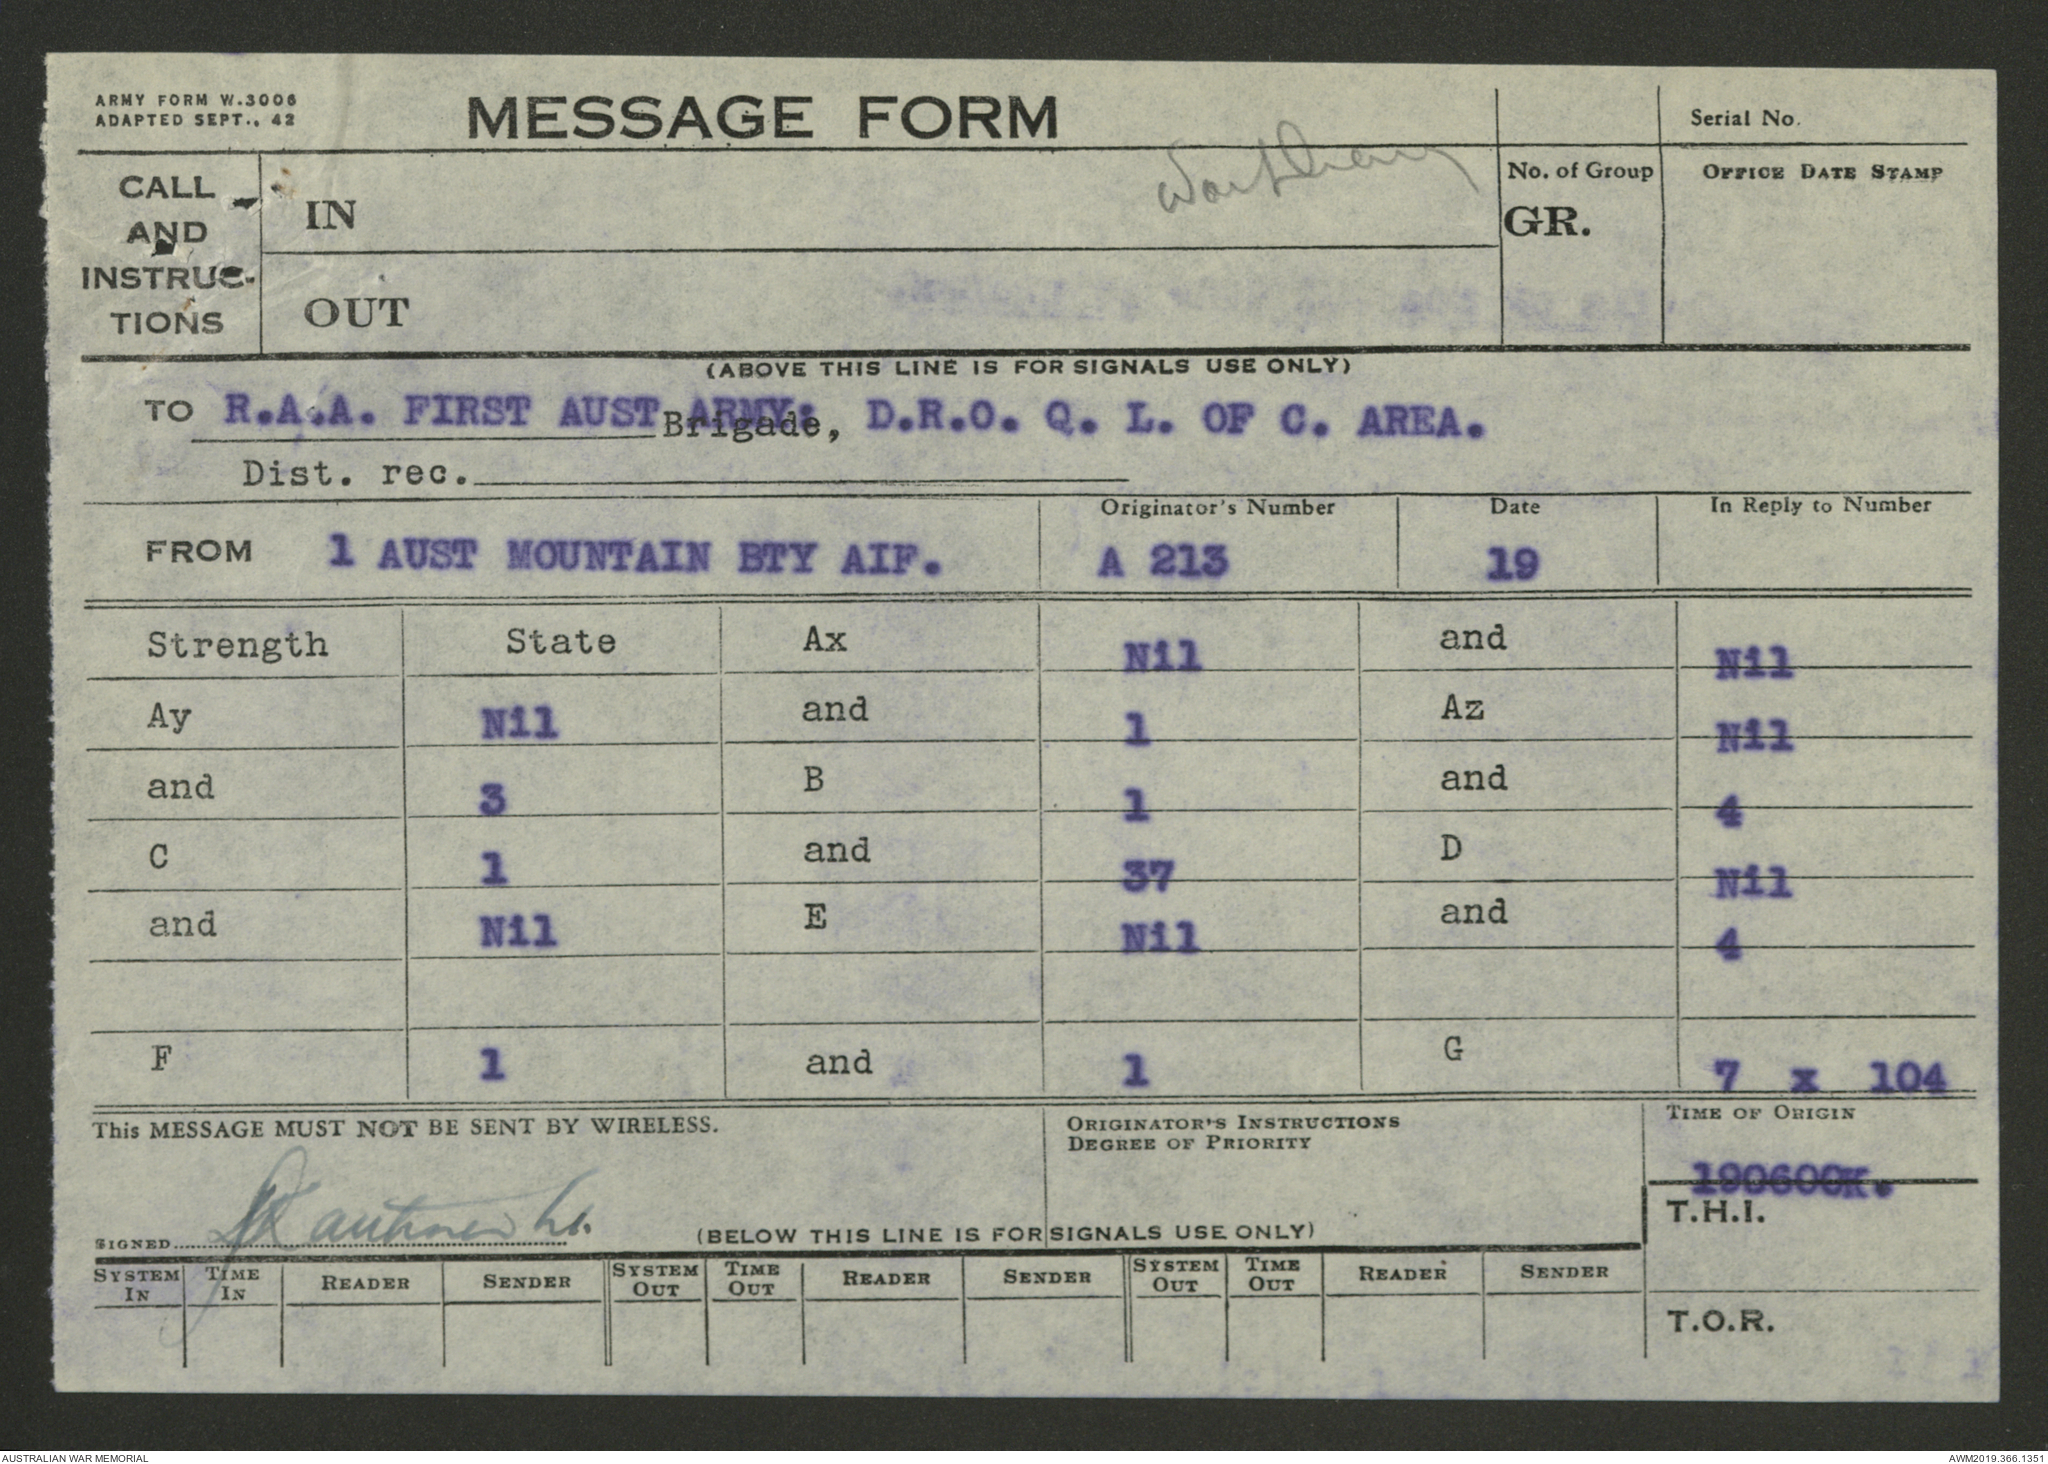 ARMY FORM W.3006
ADAPTED SEPT., 42
MESSAGE FORM
Serial No.
CALL
AND
INSTRUC-
TIONS
IN
OUT
No. of Group
GR.
OFFICE DATE STAMP
(ABOVE THIS LINE IS FOR SIGNALS USE ONLY)
TO R.A.A. FIRST AUST ARMY: Brigade, D.R.O. Q. L. OF C. AREA.
Dist. rec.
FROM 1 AUST MOUNTAIN BTY AIF.
Originator's Number
A 213
Date
19
In Reply to Number
Strength State Ax Nil and Nil
Ay Nil and 1 Az Nil
and 3 B 1 and 4
C 1 and 37 D Nil
and Nil E Nil and 4
F 1 and 1 G 7 x 104
This MESSAGE MUST NOT BE SENT BY WIRELESS.
ORIGINATOR'S INSTRUCTIONS
DEGREE OF PRIORITY
TIME OF ORIGIN
190600K.
SIGNED
(BELOW THIS LINE IS FOR SIGNALS USE ONLY)
T.H.I.
SYSTEM IN TIME IN READER SENDER SYSTEM OUT TIME OUT READER SENDER SYSTEM OUT TIME OUT READER SENDER
T.O.R.
AUSTRALIAN WAR MEMORIAL
AWM2019.366.1351